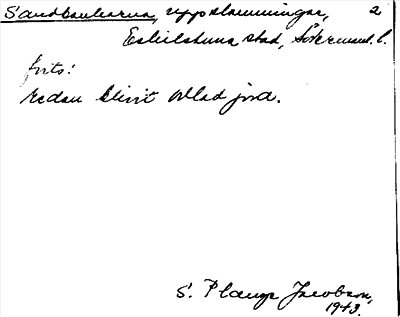 Sandbankarna, uppslamningar, 2
Eskilstuna stad, Söderманl. l.
forts:
redan blivit odlad jord.
S. Plange Jacobson,
1943.